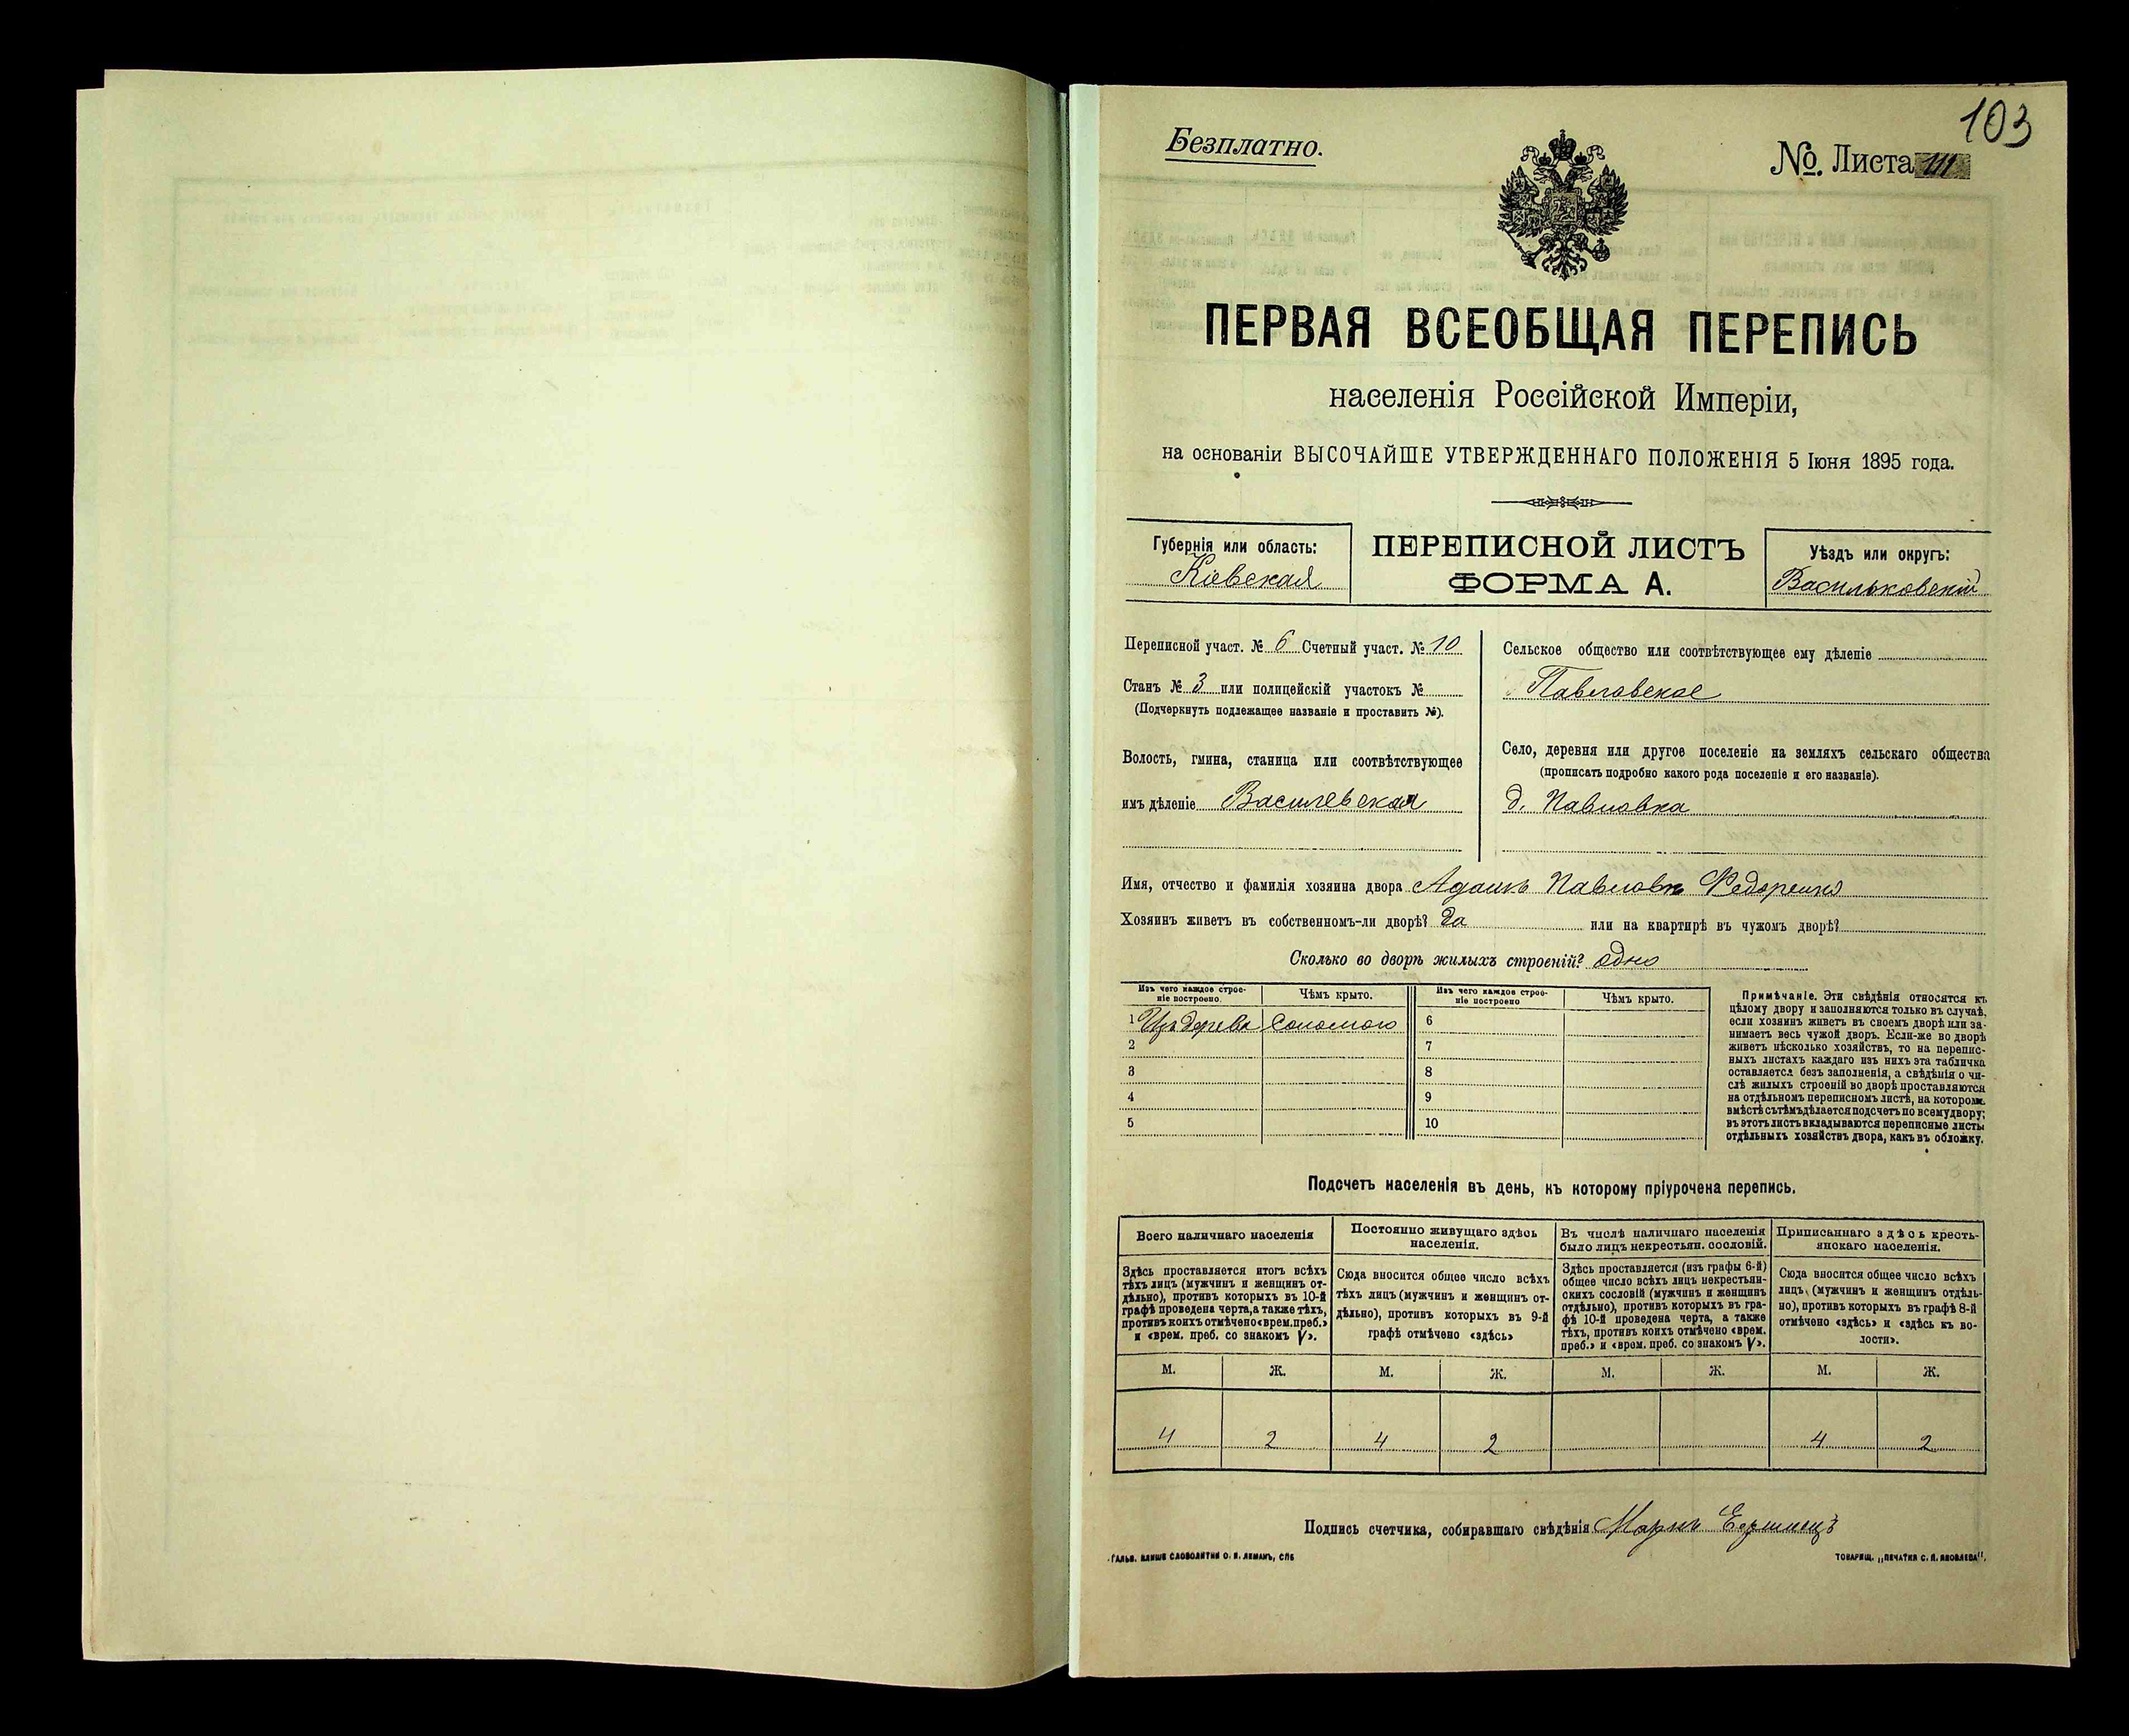 103
Безплатно.
№. Листа 111
ПЕРВАЯ ВСЕОБЩАЯ ПЕРЕПИСЬ
населенія Россійской Имперіи,
на основаніи ВЫСОЧАЙШЕ УТВЕРЖДЕННАГО ПОЛОЖЕНІЯ 5 Іюня 1895 года.
Губернія или область:
Кіевская
ПЕРЕПИСНОЙ ЛИСТЪ
ФОРМА А.
Уѣздъ или округъ:
Васильковскій
Переписной участ. № 6 Счетный участ. № 10
Станъ № 3 или полицейскій участокъ №
(Подчеркнуть подлежащее названіе и проставить №).
Волость, гмина, станица или соотвѣтствующее
имъ дѣленіе Василевская
Сельское общество или соотвѣтствующее ему дѣленіе
Павловское
Село, деревня или другое поселеніе на земляхъ сельскаго общества
(прописать подробно какого рода поселеніе и его названіе).
д. Павловка
Имя, отчество и фамилія хозяина двора Адамъ Павловъ Федоренко
Хозяинъ живетъ въ собственномъ-ли дворѣ? Да или на квартирѣ въ чужомъ дворѣ?
Сколько во дворѣ жилыхъ строеній? одно
Изъ чего каждое строе-
ніе построено.
Чѣмъ крыто.
Изъ чего каждое строе-
ніе построено
Чѣмъ крыто.
1 Изъ дерева Соломою 6
2 7
3 8
4 9
5 10
Примѣчаніе. Эти свѣдѣнія относятся къ
цѣлому двору и заполняются только въ случаѣ,
если хозяинъ живетъ въ своемъ дворѣ или за-
нимаетъ весь чужой дворъ. Если-же во дворѣ
живетъ нѣсколько хозяйствъ, то на перепис-
ныхъ листахъ каждаго изъ нихъ эта табличка
оставляется безъ заполненія, а свѣдѣнія о чи-
слѣ жилыхъ строеній во дворѣ проставляются
на отдѣльномъ переписномъ листѣ, на которомъ
вмѣстѣ съ тѣмъ дѣлается подсчетъ по всему двору;
въ этотъ листъ вкладываются переписные листы
отдѣльныхъ хозяйствъ двора, какъ въ обложку.
Подсчетъ населенія въ день, къ которому пріурочена перепись.
Всего наличнаго населенія
Здѣсь проставляется итогъ всѣхъ
тѣхъ лицъ (мужчинъ и женщинъ от-
дѣльно), противъ которыхъ въ 10-й
графѣ проведена черта, а также тѣхъ,
противъ коихъ отмѣчено «врем. преб.»
и «врем. преб. со знакомъ V».
Постоянно живущаго здѣсь
населенія.
Сюда вносится общее число всѣхъ
тѣхъ лицъ (мужчинъ и женщинъ от-
дѣльно), противъ которыхъ въ 9-й
графѣ отмѣчено «здѣсь»
Въ числѣ наличнаго населенія
было лицъ некрестьян. сословій.
Здѣсь проставляется (изъ графы 6-й)
общее число всѣхъ лицъ некрестьян-
скихъ сословій (мужчинъ и женщинъ
отдѣльно), противъ которыхъ въ гра-
фѣ 10-й проведена черта, а также
тѣхъ, противъ коихъ отмѣчено «врем.
преб.» и «врем. преб. со знакомъ V».
Приписаннаго здѣсь кресть-
янскаго населенія.
Сюда вносится общее число всѣхъ
лицъ, (мужчинъ и женщинъ отдѣль-
но), противъ которыхъ въ графѣ 8-й
отмѣчено «здѣсь» и «здѣсь къ во-
лости».
М. Ж. М. Ж. М. Ж. М. Ж.
4 2 4 2 4 2
Подпись счетчика, собиравшаго свѣдѣнія Маркъ
ГАЛЬВ. КЛИШЕ СЛОВОЛИТНИ О. И. ЛЕМАНЪ, СПБ
ТОВАРИЩ. „ПЕЧАТНЯ С. П. ЯКОВЛЕВА“.